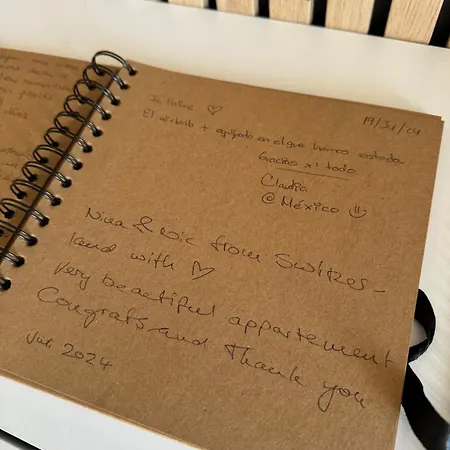 19/Jul/24
El airbnb + equipado en el que hemos estado
Gracias x' todo
Claudia
@México
Nina & Nic from Switzer-
land with ♡
Very beautiful appartement
Congrats and Thank you
Juli 2024